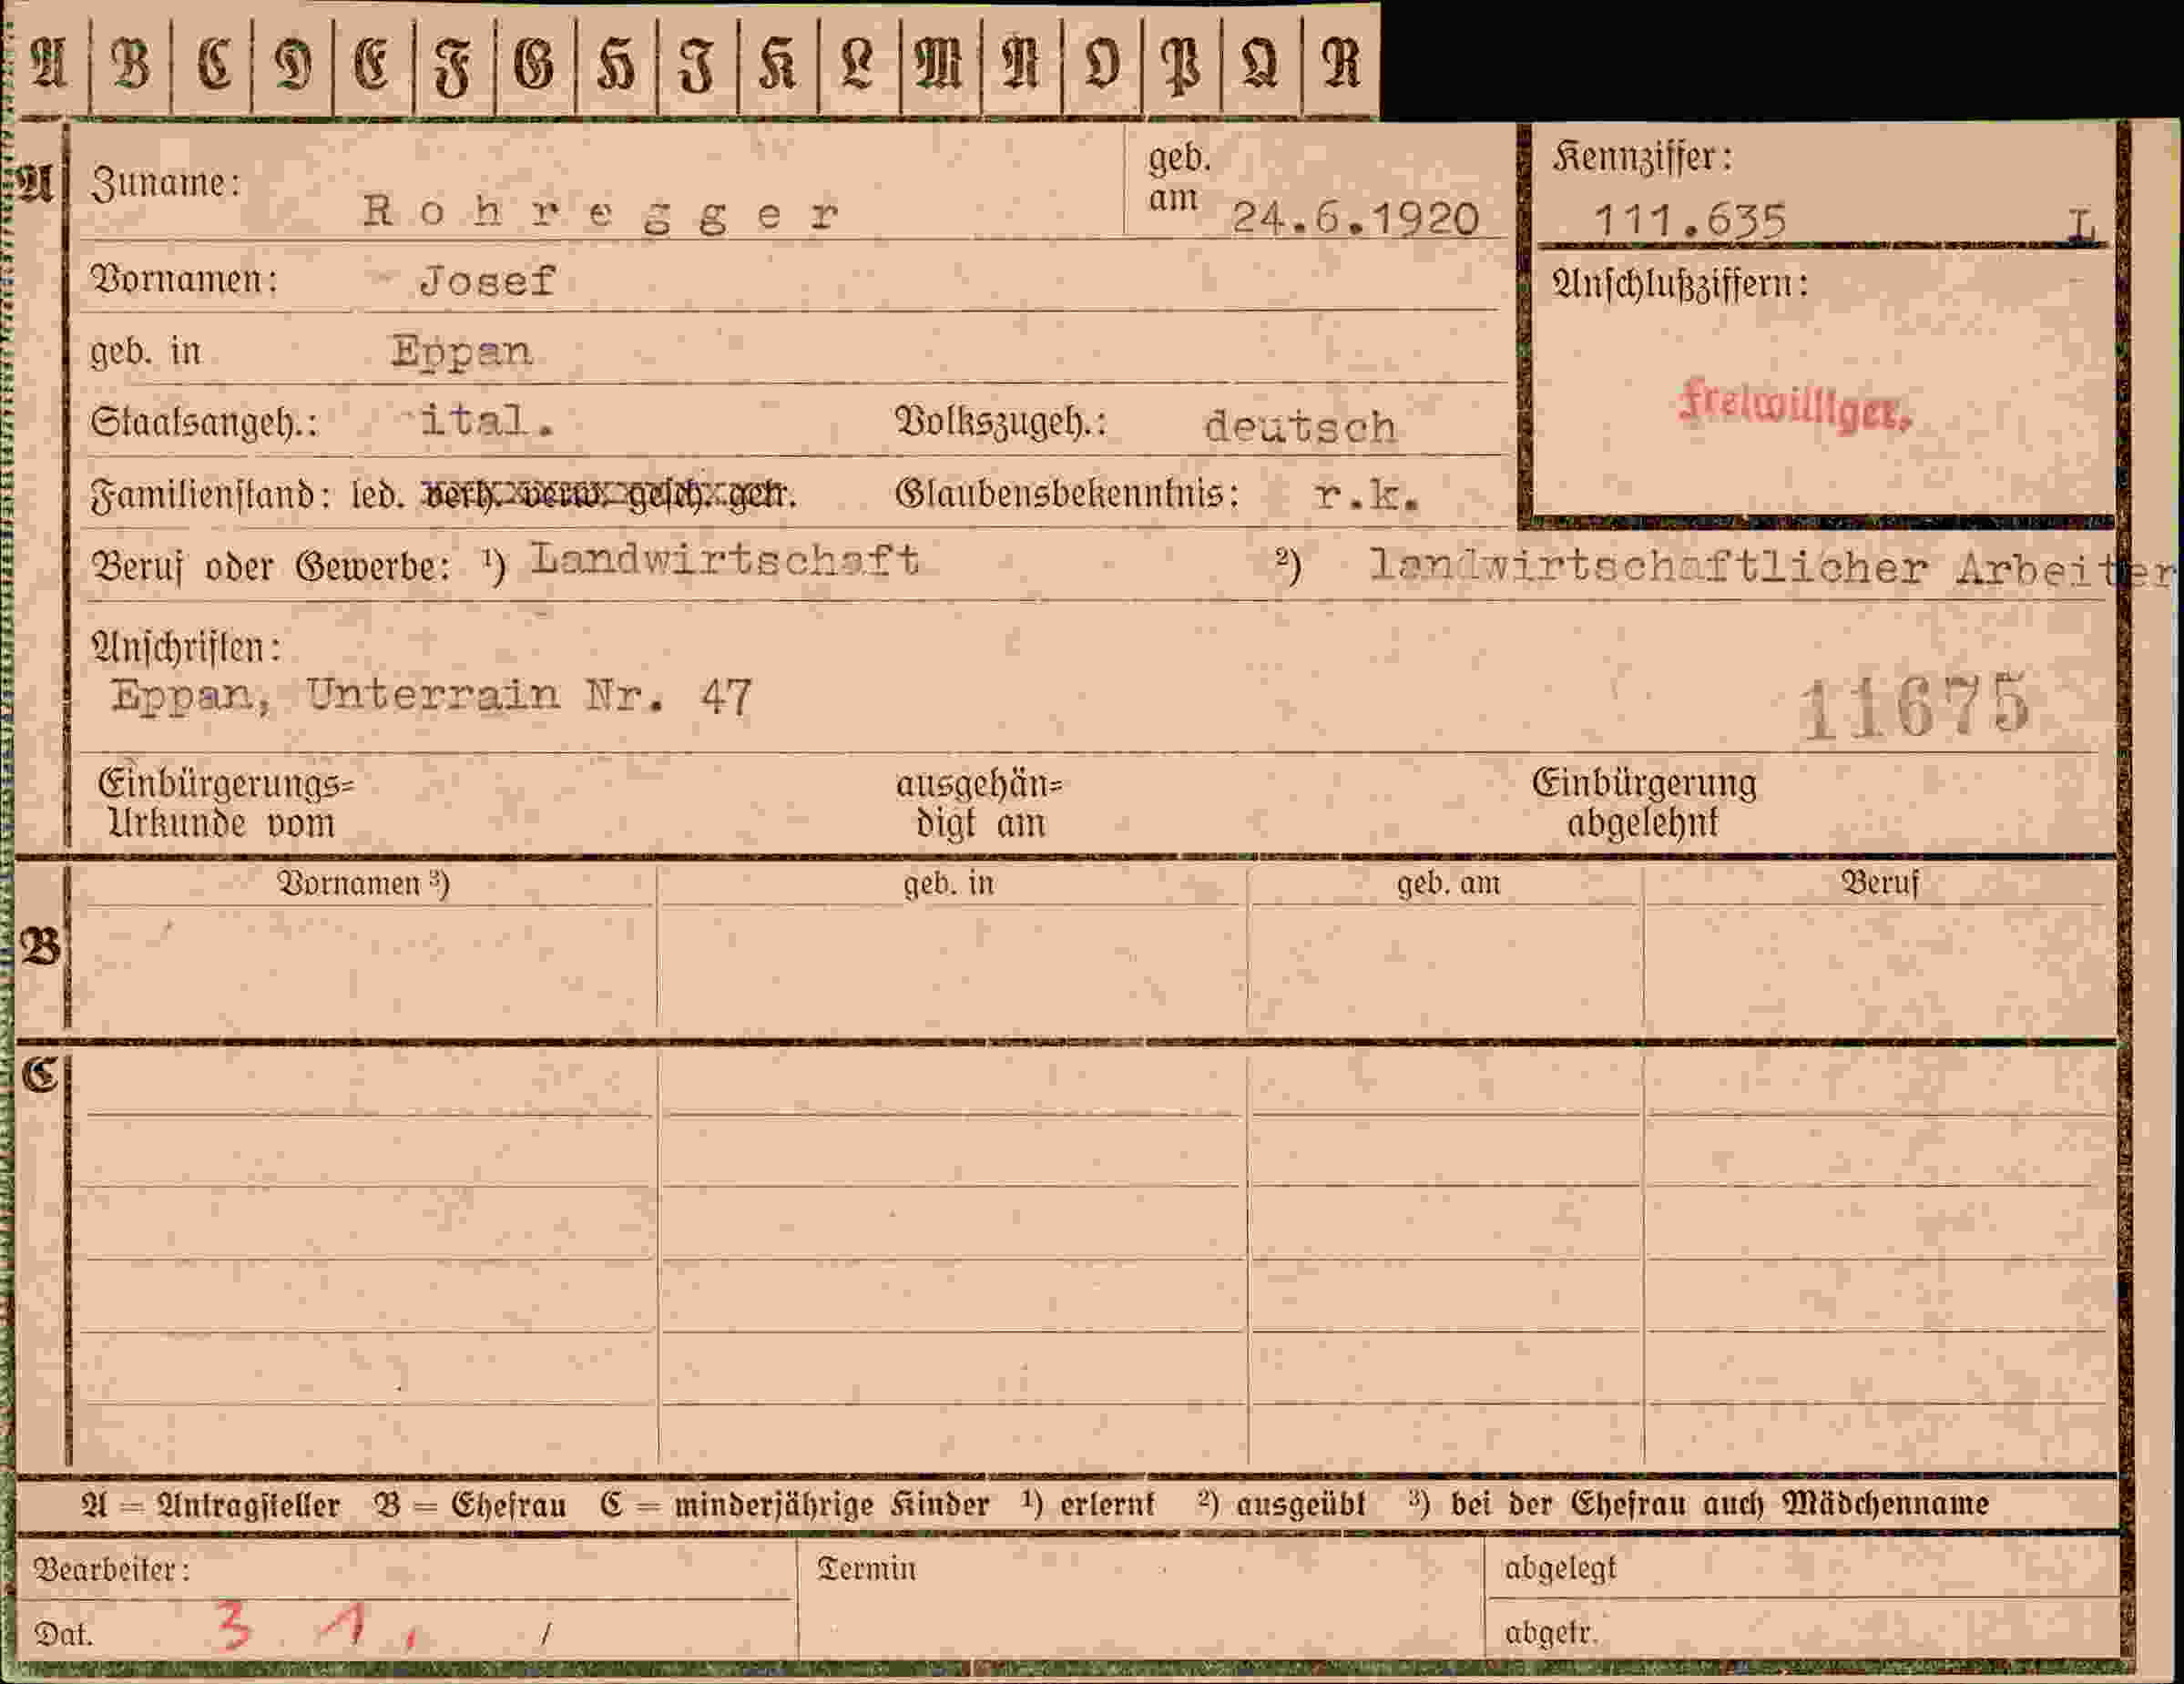 A B C D E F G H I K L M N O P Q R
A Zuname: Rohregger geb. am 24.6.1920 Kennziffer: 111.635 L
Vornamen: Josef Anschlußziffern:
geb. in Eppan
Freiwilliger.
Staatsangeh.: ital. Volkszugeh.: deutsch
Familienstand: led. verh. verw. gesch. getr. Glaubensbekenntnis: r.k.
Beruf oder Gewerbe: ¹) Landwirtschaft ²) landwirtschaftlicher Arbeiter
Anschriften:
Eppan, Unterrain Nr. 47 11675
Einbürgerungs= ausgehän= Einbürgerung
Urkunde vom digt am abgelehnt
Vornamen ³) geb. in geb. am Beruf
B
C
A = Antragsteller B = Ehefrau C = minderjährige Kinder ¹) erlernt ²) ausgeübt ³) bei der Ehefrau auch Mädchenname
Bearbeiter: Termin abgelegt
Dat. 3 1. / abgetr.